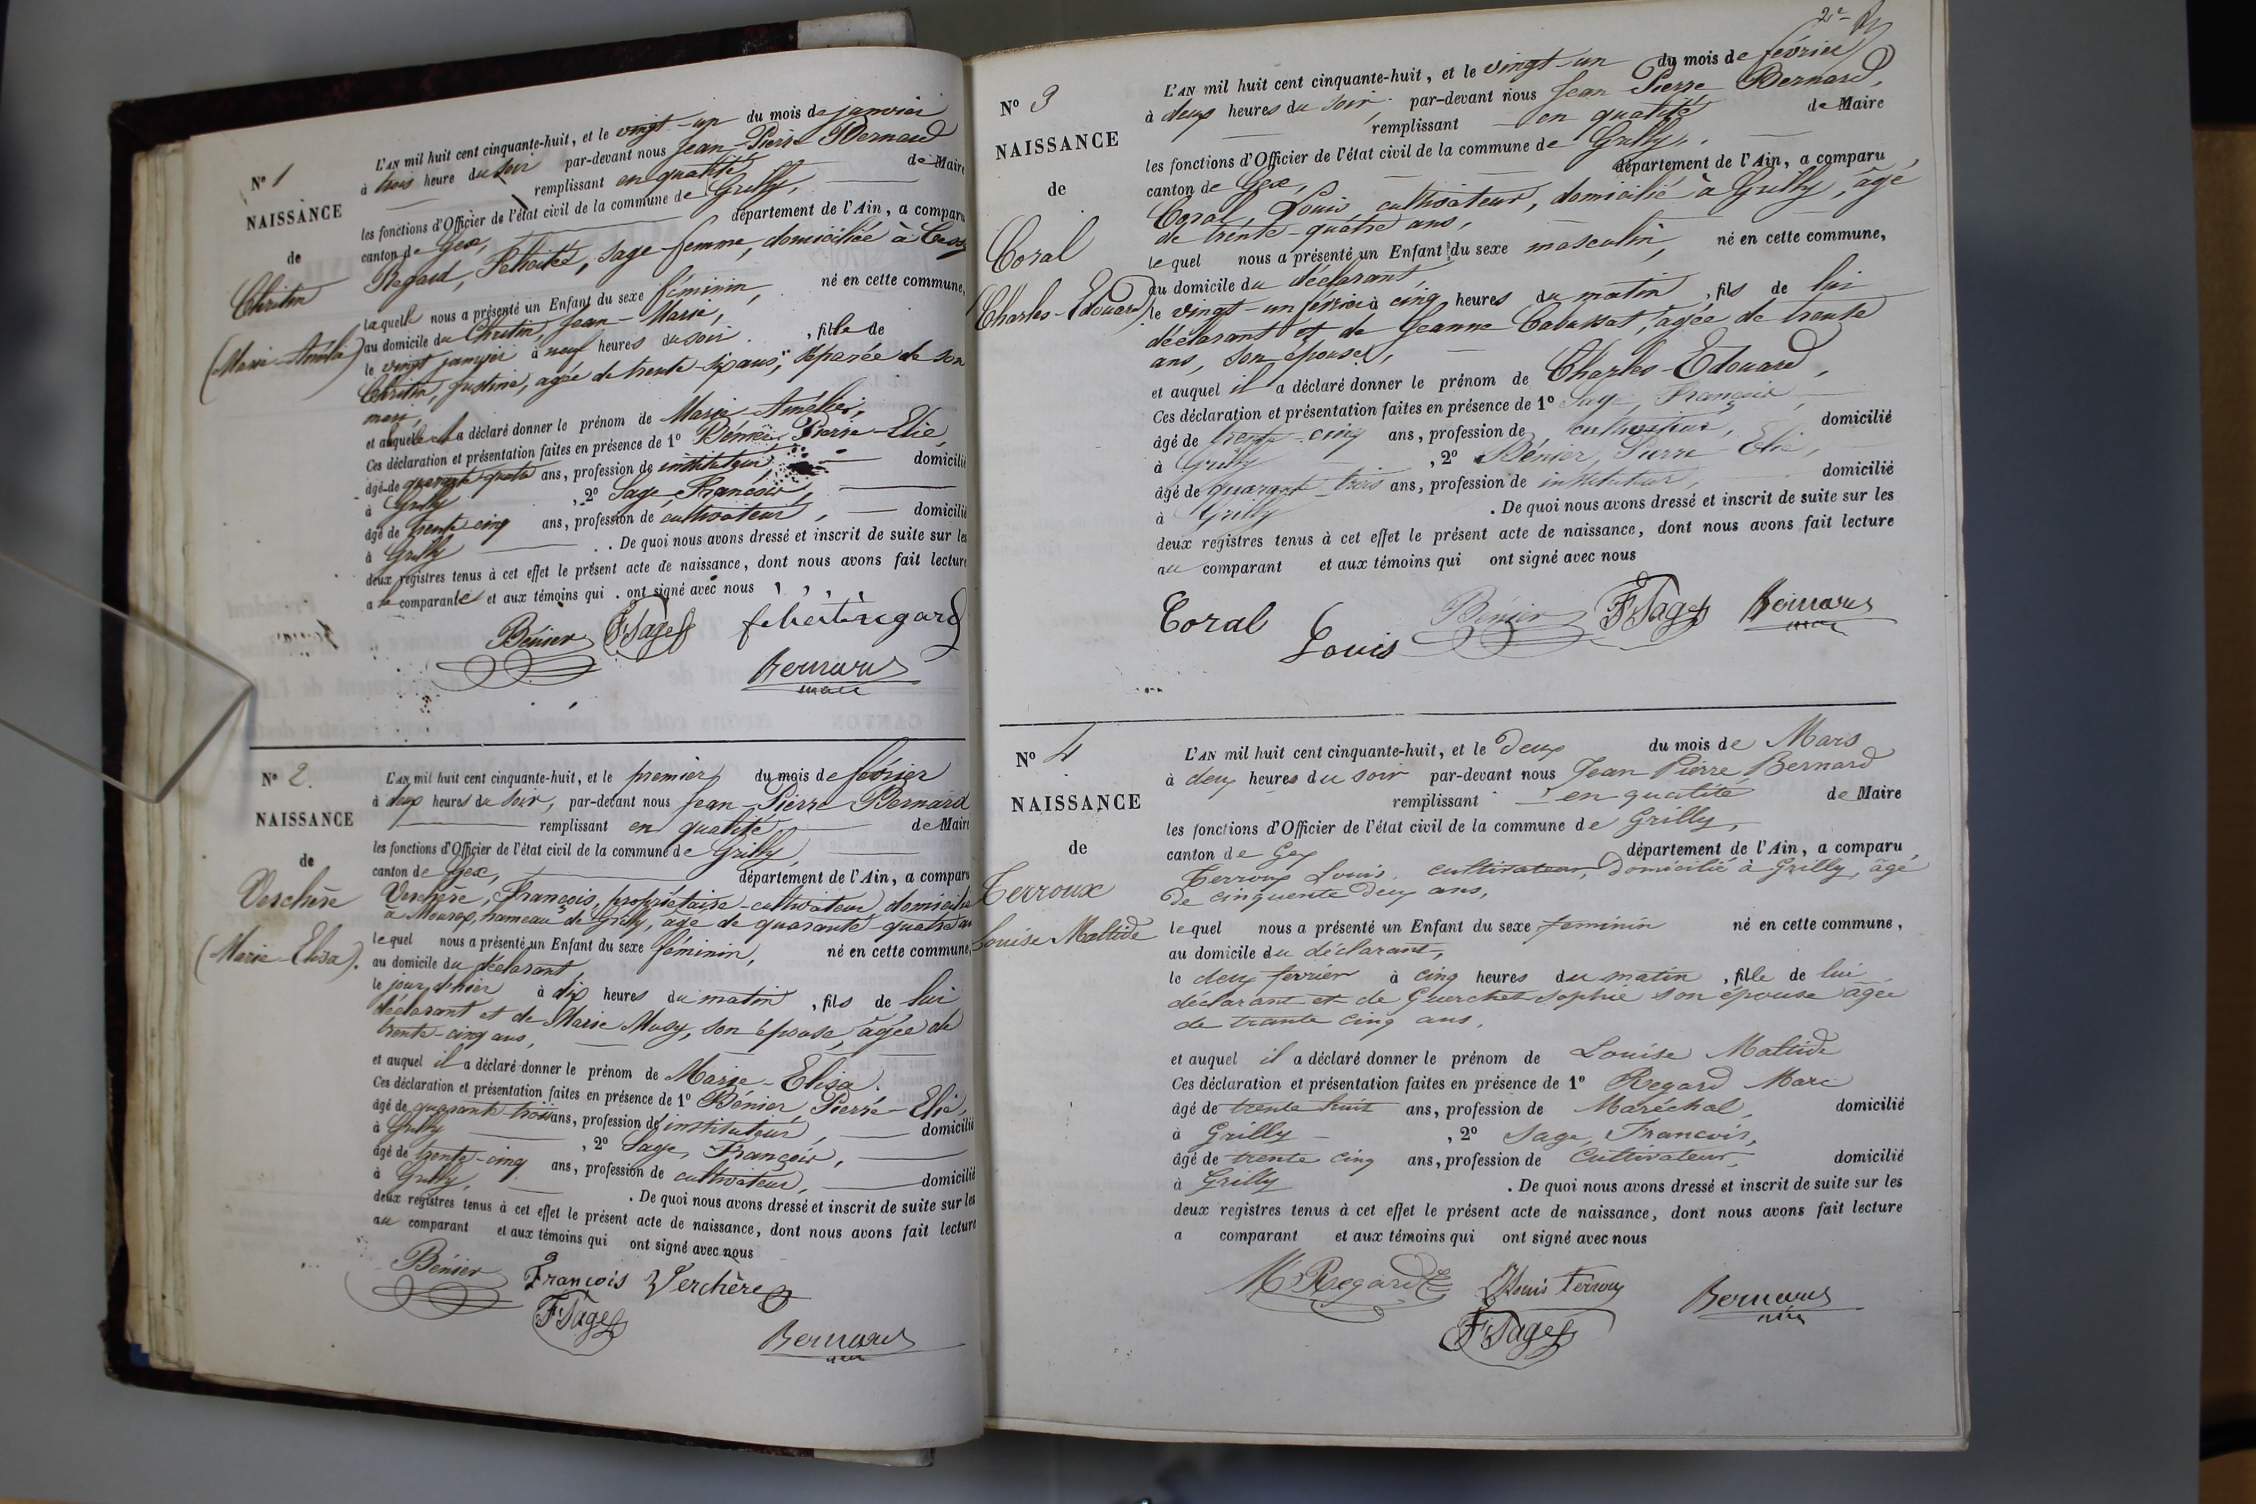 N° 1
NAISSANCE
de
Chritin
(Marie-Amélie)
L'AN mil huit cent cinquante-huit, et le vingt-un du mois de janvier
à trois heure du soir par-devant nous Jean-Pierre Bernard
remplissant en qualité de Maire
les fonctions d'Officier de l'état civil de la commune de Grilly,
canton de Gex, département de l'Ain, a comparu
Regard, Félicité, sage-femme, domiciliée à
laquelle nous a présenté un Enfant du sexe féminin, né en cette commune,
au domicile du Chritin, Jean-Marie,
le vingt janvier à neuf heures du soir, fille de
Chritin, Justine, agée de trente-six ans, séparée de son
mari,
et auquel elle a déclaré donner le prénom de Marie-Amélie,
Ces déclaration et présentation faites en présence de 1° Bénier, Pierre-Elie,
âgé de quarante ans, profession de instituteur, domicilié
à Grilly, 2° Sage, François,
âgé de trente-cinq ans, profession de cultivateur, domicilié
à Grilly. De quoi nous avons dressé et inscrit de suite sur les
deux registres tenus à cet effet le présent acte de naissance, dont nous avons fait lecture
a la comparante et aux témoins qui ont signé avec nous
Bénier F Sage felicité regard
Bernard
maire
N° 2.
NAISSANCE
de
Verchère
(Marie-Elisa).
L'AN mil huit cent cinquante-huit, et le premier du mois de février
à deux heures du soir, par-devant nous Jean-Pierre Bernard
remplissant en qualité de Maire
les fonctions d'Officier de l'état civil de la commune de Grilly,
canton de Gex, département de l'Ain, a comparu
Verchère, François, propriétaire-cultivateur domicilié
à Mourex, hameau de Grilly, âgé de quarante-quatre ans
lequel nous a présenté un Enfant du sexe féminin, né en cette commune,
au domicile du déclarant,
le jour d'hier à dix heures du matin, fils de lui
déclarant et de Marie Musy, son épouse, âgée de
trente-cinq ans,
et auquel il a déclaré donner le prénom de Marie-Elisa.
Ces déclaration et présentation faites en présence de 1° Bénier, Pierre-Elie,
âgé de quarante trois ans, profession de instituteur, domicilié
à Grilly, 2° Sage, François,
âgé de trente-cinq ans, profession de cultivateur, domicilié
à Grilly, . De quoi nous avons dressé et inscrit de suite sur les
deux registres tenus à cet effet le présent acte de naissance, dont nous avons fait lecture
au comparant et aux témoins qui ont signé avec nous
Bénier François Verchère
F Sage
Bernard
2e
N° 3
NAISSANCE
de
Coral
(Charles-Edouard)
L'AN mil huit cent cinquante-huit, et le vingt-un du mois de février
à deux heures du soir, par-devant nous Jean Pierre Bernard,
remplissant en qualité de Maire
les fonctions d'Officier de l'état civil de la commune de Grilly,
canton de Gex, département de l'Ain, a comparu
Coral, Louis cultivateur, domicilié à Grilly, âgé
de trente-quatre ans,
lequel nous a présenté un Enfant du sexe masculin, né en cette commune,
au domicile du déclarant,
le vingt-un février à cinq heures du matin, fils de lui
déclarant et de Jeanne Cabussat, âgée de trente
ans, son épouse,
et auquel il a déclaré donner le prénom de Charles-Edouard,
Ces déclaration et présentation faites en présence de 1° Sage, François,
âgé de trente-cinq ans, profession de cultivateur, domicilié
à Grilly, 2° Bénier, Pierre Elie,
âgé de quarante-trois ans, profession de instituteur, domicilié
à Grilly. De quoi nous avons dressé et inscrit de suite sur les
deux registres tenus à cet effet le présent acte de naissance, dont nous avons fait lecture
au comparant et aux témoins qui ont signé avec nous
Coral Louis Bénier F Sage Bernard
maire
N° 4
NAISSANCE
de
Terroux
Louise Maltide
L'AN mil huit cent cinquante-huit, et le Deux du mois de Mars
à deux heures du soir par-devant nous Jean Pierre Bernard
remplissant en qualité de Maire
les fonctions d'Officier de l'état civil de la commune de Grilly,
canton de Gex département de l'Ain, a comparu
Terroux Louis. cultivateur, Domicilié à Grilly, âgé
de cinquente Deux ans,
lequel nous a présenté un Enfant du sexe feminin né en cette commune,
au domicile du déclarant,
le deux ferrier à cinq heures du matin, fille de lui
déclarant et de Guerchet Sophie son épouse âgée
de trante cinq ans,
et auquel il a déclaré donner le prénom de Louise Maltide
Ces déclaration et présentation faites en présence de 1° Regard Marc
âgé de trente huit ans, profession de Maréchal, domicilié
à Grilly, 2° Sage, François,
âgé de trente cinq ans, profession de Cultivateur, domicilié
à Grilly. De quoi nous avons dressé et inscrit de suite sur les
deux registres tenus à cet effet le présent acte de naissance, dont nous avons fait lecture
a comparant et aux témoins qui ont signé avec nous
M Regard Louis Terroux Bernard
F Sage